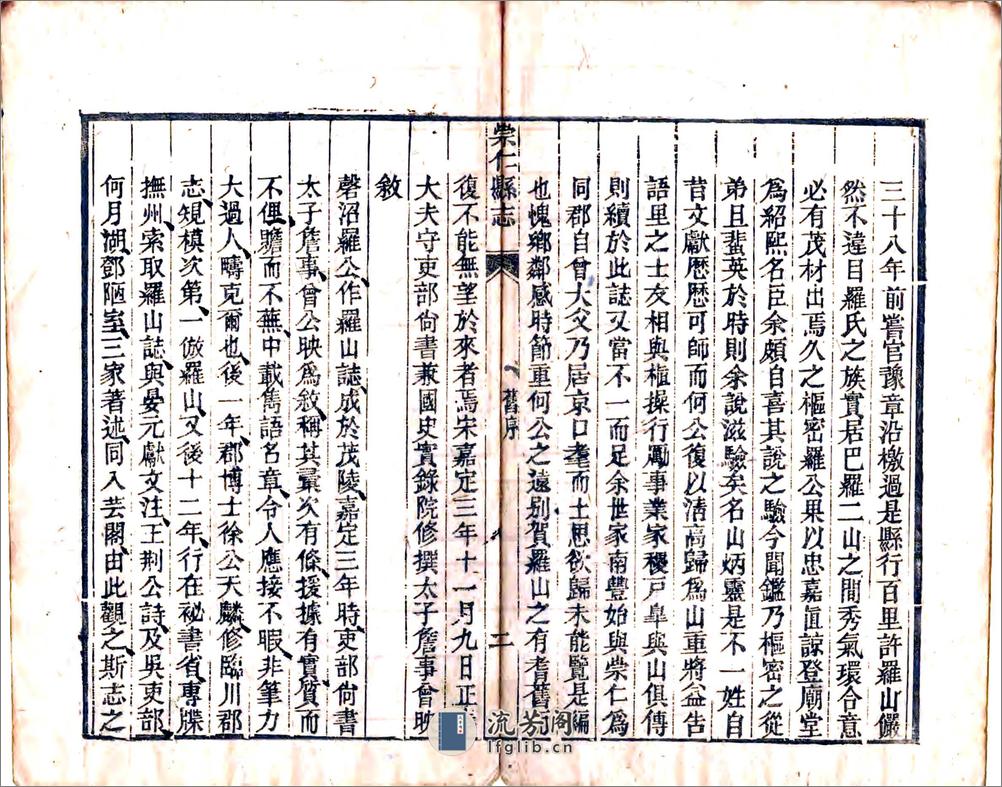 三十八年前嘗官豫章沿檄過是縣行百里許羅山儼
然不違目羅氏之族實居巴羅二山之間秀氣環合意
必有茂材出焉久之樞密羅公果以忠嘉直諒登廟堂
為紹熙名臣余頗自喜其說之驗今聞鑑乃樞密之從
弟且蜚英於時則余說滋驗矣名山炳靈是不一姓自
昔文獻歷歷可師而何公復以清高歸為山重將益告
語里之士友相與植操行勵事業家稷戸皐與山俱傳
則續於此誌又當不一而足余世家南豐始與崇仁為
同郡自曾大父乃居京口耄而土思欲歸未能覽是編
也愧鄉鄰感時節重何公之遠別賀羅山之有耆舊
復不能無望於來者焉宋嘉定三年十一月九日正
大夫守吏部尚書兼國史實錄院修撰太子詹事曾映
敘
崇仁縣志
舊序
二
磬沼羅公作羅山誌成於茂陵嘉定三年時吏部尚書
太子詹事曾公映為敘稱其彚次有條援據有實質而
不俚贍而不蕪中載雋語名章令人應接不暇非筆力
大過人疇克爾也後一年郡博士徐公天麟修臨川郡
志規模次第一倣羅山又後十二年行在祕書省專牒
撫州索取羅山誌與晏元獻文注王荆公詩及吳吏部
何月湖鄧陋室三家著述同入芸閣由此觀之斯志之
流芳阁
lfglib.cn